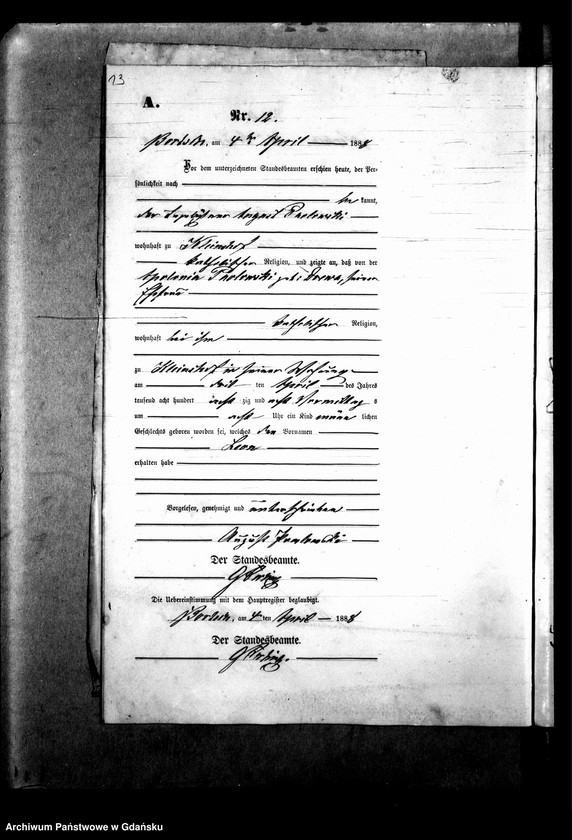 13
A.
Nr. 12.
am 4ten April 1888
Vor dem unterzeichneten Standesbeamten erschien heute, der Per-
sönlichkeit nach
be kannt,
der August
wohnhaft zu
katholischer Religion, und zeigte an, daß von der
seiner
Ehefrau
katholischer Religion,
wohnhaft bei ihm
zu in seiner Wohnung
am drit ten April des Jahres
tausend acht hundert acht zig und acht Vormittag s
um acht Uhr ein Kind männ lichen
Geschlechts geboren worden sei, welches den Vornamen
Leon
erhalten habe
Vorgelesen, genehmigt und unterschrieben
August
Der Standesbeamte.
Die Uebereinstimmung mit dem Hauptregister beglaubigt.
am 4ten April 1888
Der Standesbeamte.
Archiwum Państwowe w Gdańsku